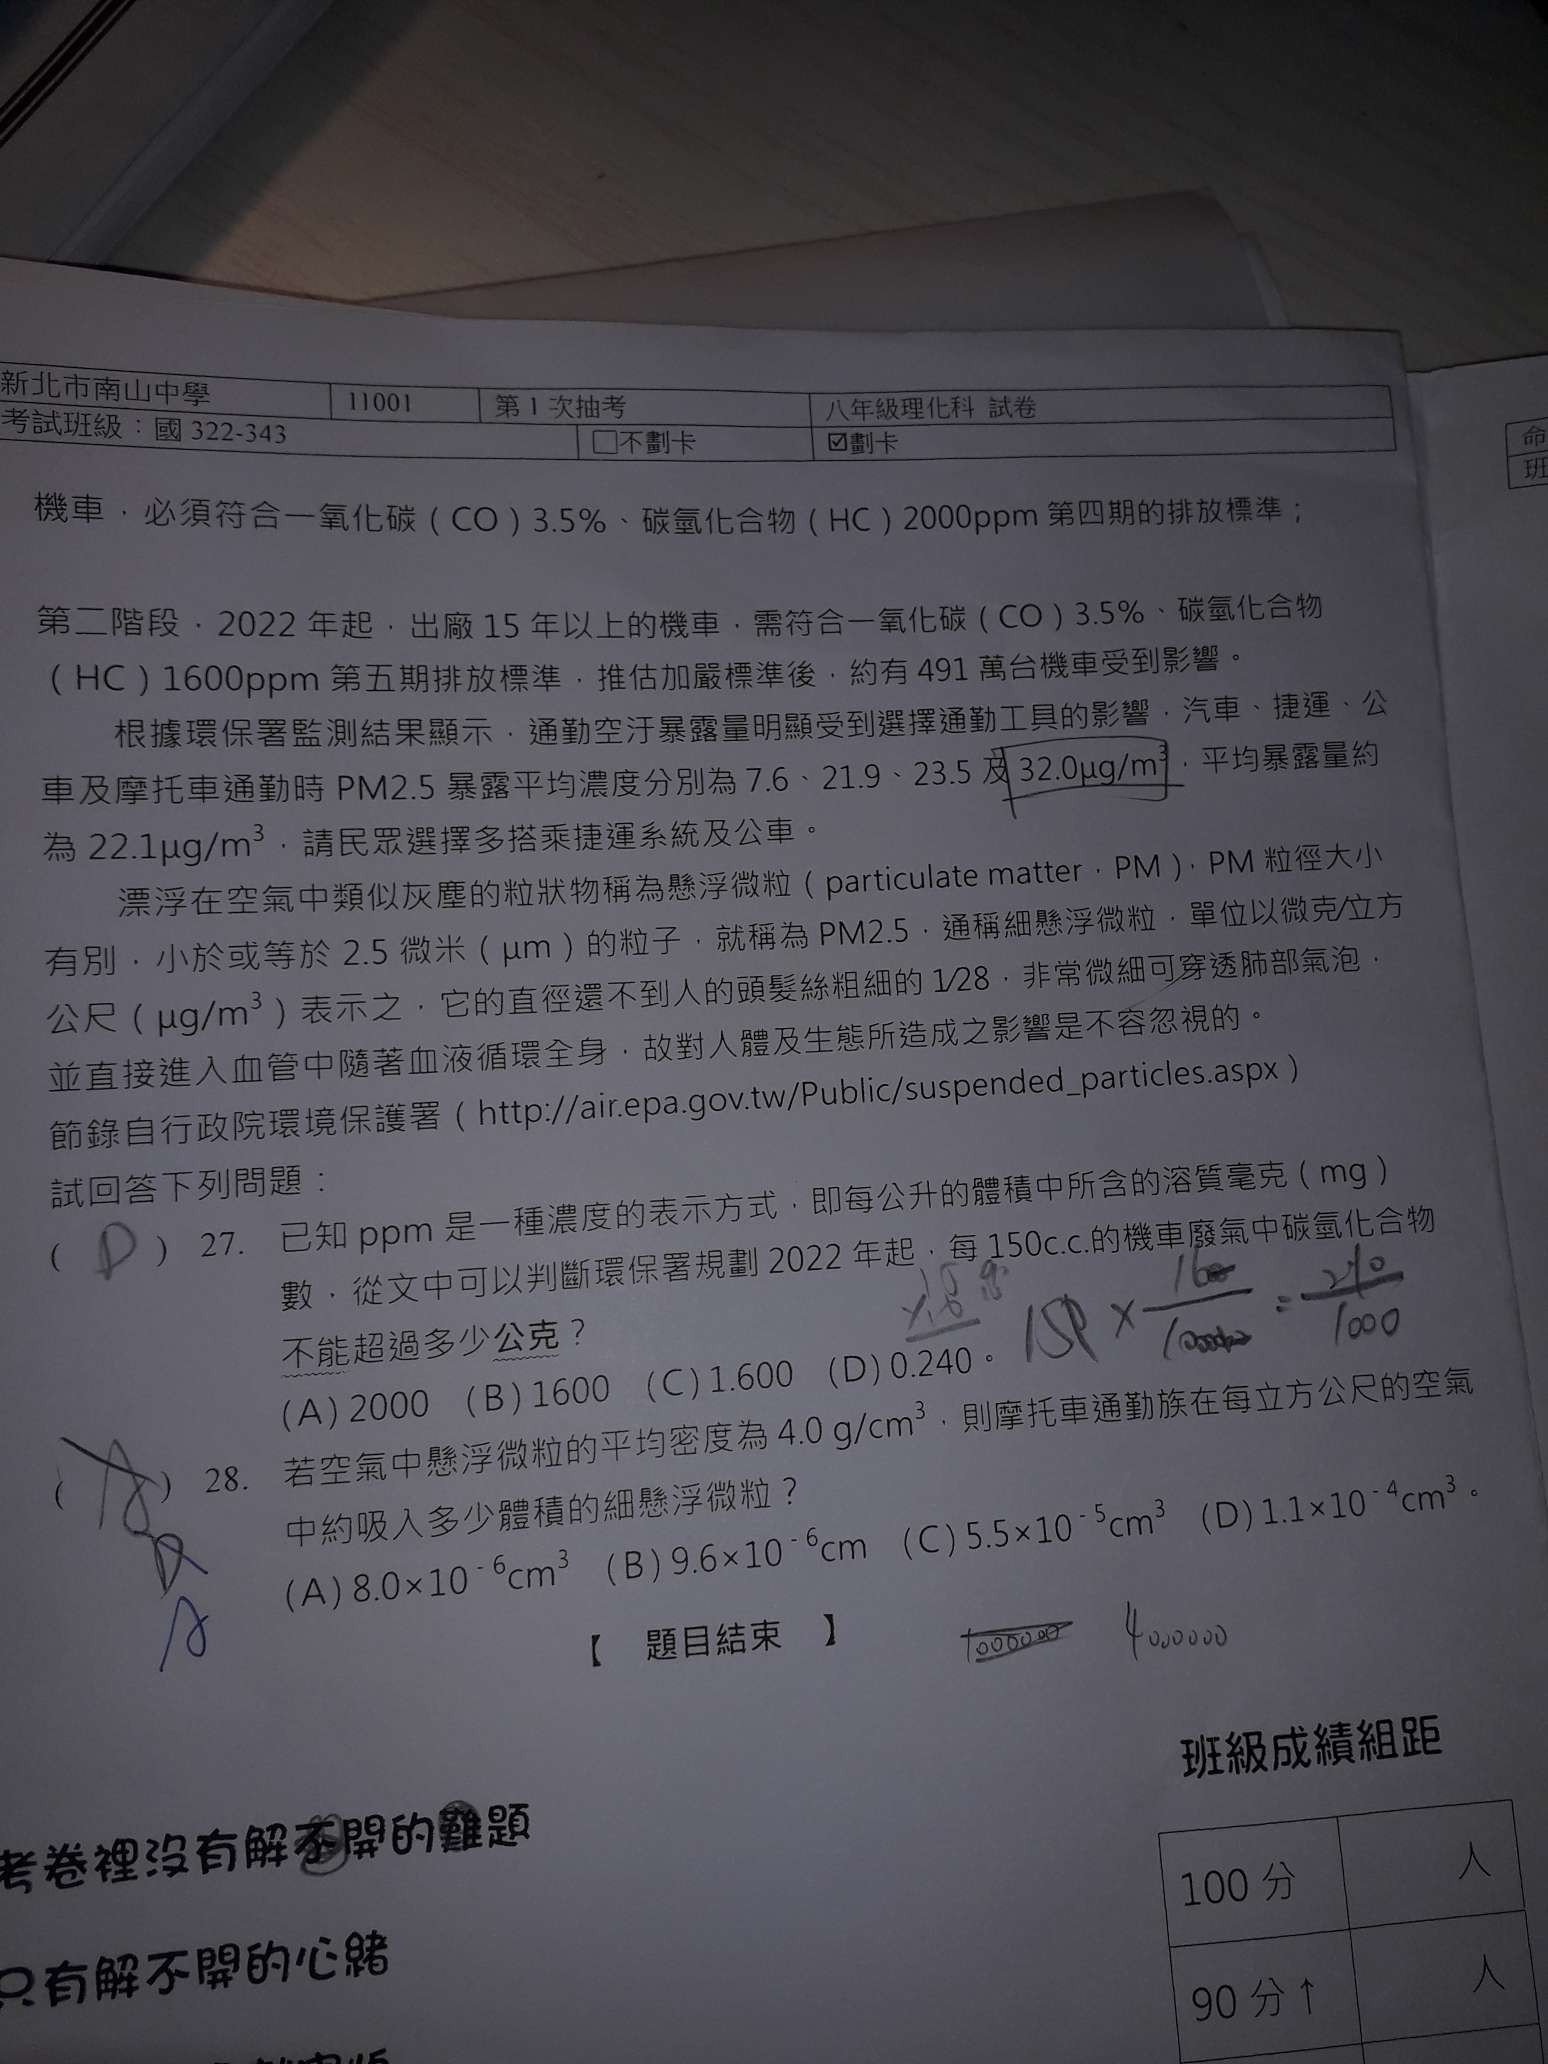 新北市南山中學 11001 第 1 次抽考 八年級理化科 試卷
考試班級：國 322-343 □不劃卡 ☑劃卡
命
班
機車，必須符合一氧化碳（CO）3.5%、碳氫化合物（HC）2000ppm 第四期的排放標準；
第二階段，2022 年起，出廠 15 年以上的機車，需符合一氧化碳（CO）3.5%、碳氫化合物
（HC）1600ppm 第五期排放標準，推估加嚴標準後，約有 491 萬台機車受到影響。
根據環保署監測結果顯示，通勤空汙暴露量明顯受到選擇通勤工具的影響，汽車、捷運、公
車及摩托車通勤時 PM2.5 暴露平均濃度分別為 7.6、21.9、23.5 及 32.0μg/m³，平均暴露量約
為 22.1μg/m³，請民眾選擇多搭乘捷運系統及公車。
漂浮在空氣中類似灰塵的粒狀物稱為懸浮微粒（particulate matter，PM），PM 粒徑大小
有別，小於或等於 2.5 微米（μm）的粒子，就稱為 PM2.5，通稱細懸浮微粒，單位以微克/立方
公尺（μg/m³）表示之，它的直徑還不到人的頭髮絲粗細的 1/28，非常微細可穿透肺部氣泡，
並直接進入血管中隨著血液循環全身，故對人體及生態所造成之影響是不容忽視的。
節錄自行政院環境保護署（http://air.epa.gov.tw/Public/suspended_particles.aspx）
試回答下列問題：
（ D ） 27. 已知 ppm 是一種濃度的表示方式，即每公升的體積中所含的溶質毫克（mg）
數，從文中可以判斷環保署規劃 2022 年起，每 150c.c.的機車廢氣中碳氫化合物
不能超過多少公克？
(A) 2000 (B) 1600 (C) 1.600 (D) 0.240。
240
1000
（ A ） 28. 若空氣中懸浮微粒的平均密度為 4.0 g/cm³，則摩托車通勤族在每立方公尺的空氣
中約吸入多少體積的細懸浮微粒？
D
(A) 8.0×10⁻⁶cm³ (B) 9.6×10⁻⁶cm (C) 5.5×10⁻⁵cm³ (D) 1.1×10⁻⁴cm³。
A
【 題目結束 】
1000000 4000000
班級成績組距
100 分 人
90 分↑ 人
考卷裡沒有解不開的難題
只有解不開的心緒